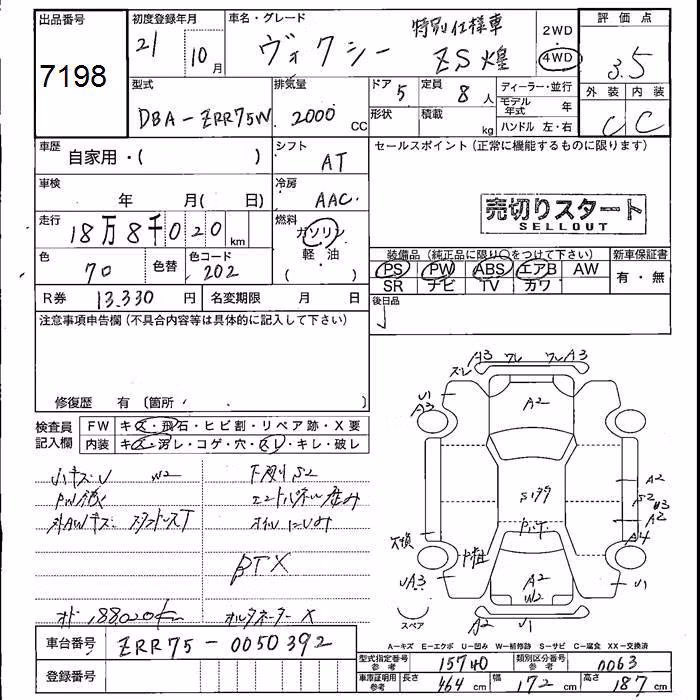 出品番号
7198
初度登録年月
21 10月
車名・グレード
ヴォクシー
特別仕様車
ZS 煌
2WD
4WD
評価点
3.5
外装 内装
C C
型式
DBA-ZRR75W
排気量
2000 CC
ドア 5
定員 8人
形状
積載 kg
ディーラー・並行
モデル年式 年
ハンドル 左・右
車歴
自家用・( )
シフト
AT
セールスポイント(正常に機能するものに限ります)
車検
年 月( 日)
冷房
AAC
売切りスタート
SELLOUT
走行
18万8千020km
燃料
ガソリン
軽・油
( )
色
70
色替
色コード
202
装備品(純正品に限り○をつけて下さい)
新車保証書
PS PW ABS エアB AW
SR ナビ TV カワ
有・無
R券 13.330円
名変期限 月 日
後日品
注意事項申告欄(不具合内容等は具体的に記入して下さい)
修復歴 有(箇所・ )
検査員記入欄
FW キズ・飛石・ヒビ割・リペア跡・X要
内装 キズ・汚レ・コゲ・穴・スレ・キレ・破レ
小キズU W2
下廻りS2
オイルにじみ
オド188020km
オルタネーターX
A3 A3
U1
A3
A2
A2
S2
A2
A4
欠損
UA3
U1
A2
W2
A2 U1
スペア
A-キズ E-エクボ U-凹み W-補修跡 S-サビ C-腐食 XX-交換済
車台番号 ZRR75-0050392
登録番号
型式指定番号参考 15740
類別区分番号参考 0063
車庫証明用参考 長さ 464cm 幅 172cm 高さ 187cm